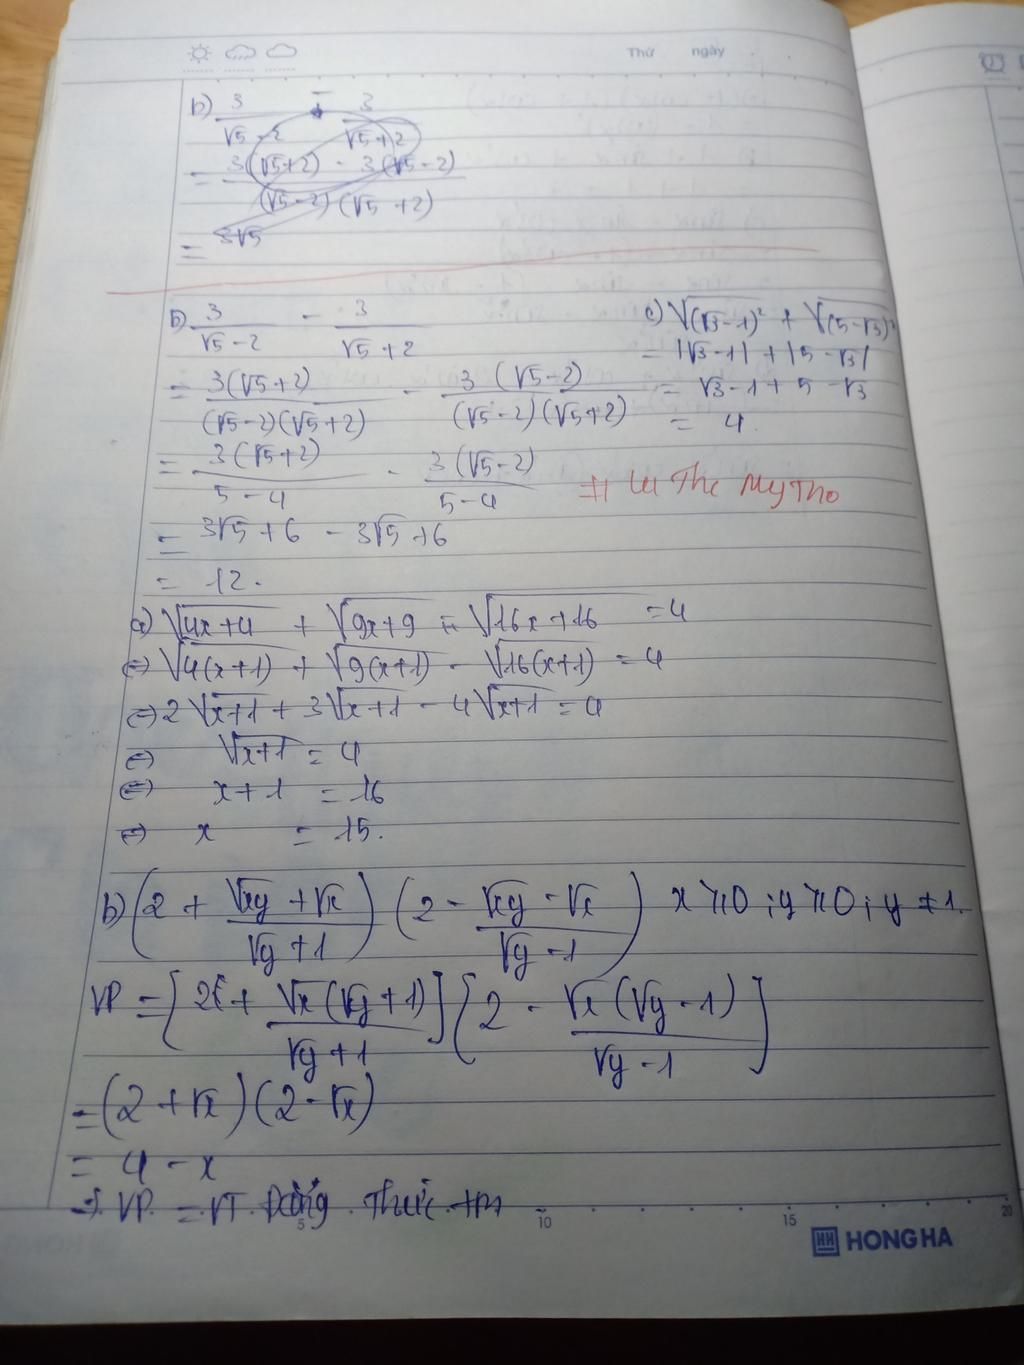 Thứ ngày
b) 3/(√5-2) - 3/(√5+2)
= (3(√5+2) - 3(√5-2))/((√5-2)(√5+2))
= 3√5
b) 3/(√5-2) - 3/(√5+2)
= 3(√5+2)/((√5-2)(√5+2)) - 3(√5-2)/((√5-2)(√5+2))
= 3(√5+2)/(5-4) - 3(√5-2)/(5-4)
= 3√5+6 - 3√5+6
= 12.
c) √((√3-1)²) + √((5-√3)²)
= |√3-1| + |5-√3|
= √3-1+5-√3
= 4.
My Tho
a) √(4x+4) + √(9x+9) - √(16x+16) = 4
(=) √(4(x+1)) + √(9(x+1)) - √(16(x+1)) = 4
(=) 2√(x+1) + 3√(x+1) - 4√(x+1) = 4
(=) √(x+1) = 4
(=) x+1 = 16
(=) x = 15.
b) (2 + (√xy+√x)/(√y+1)) (2 - (√xy-√x)/(√y-1)) x ≥ 0; y ≥ 0; y ≠ 1.
VP = [2 + √x(√y+1)/(√y+1)] [2 - √x(√y-1)/(√y-1)]
= (2+√x)(2-√x)
= 4 - x
=) VP = VT. Đẳng thức
5 10 15 20
HH HONG HA